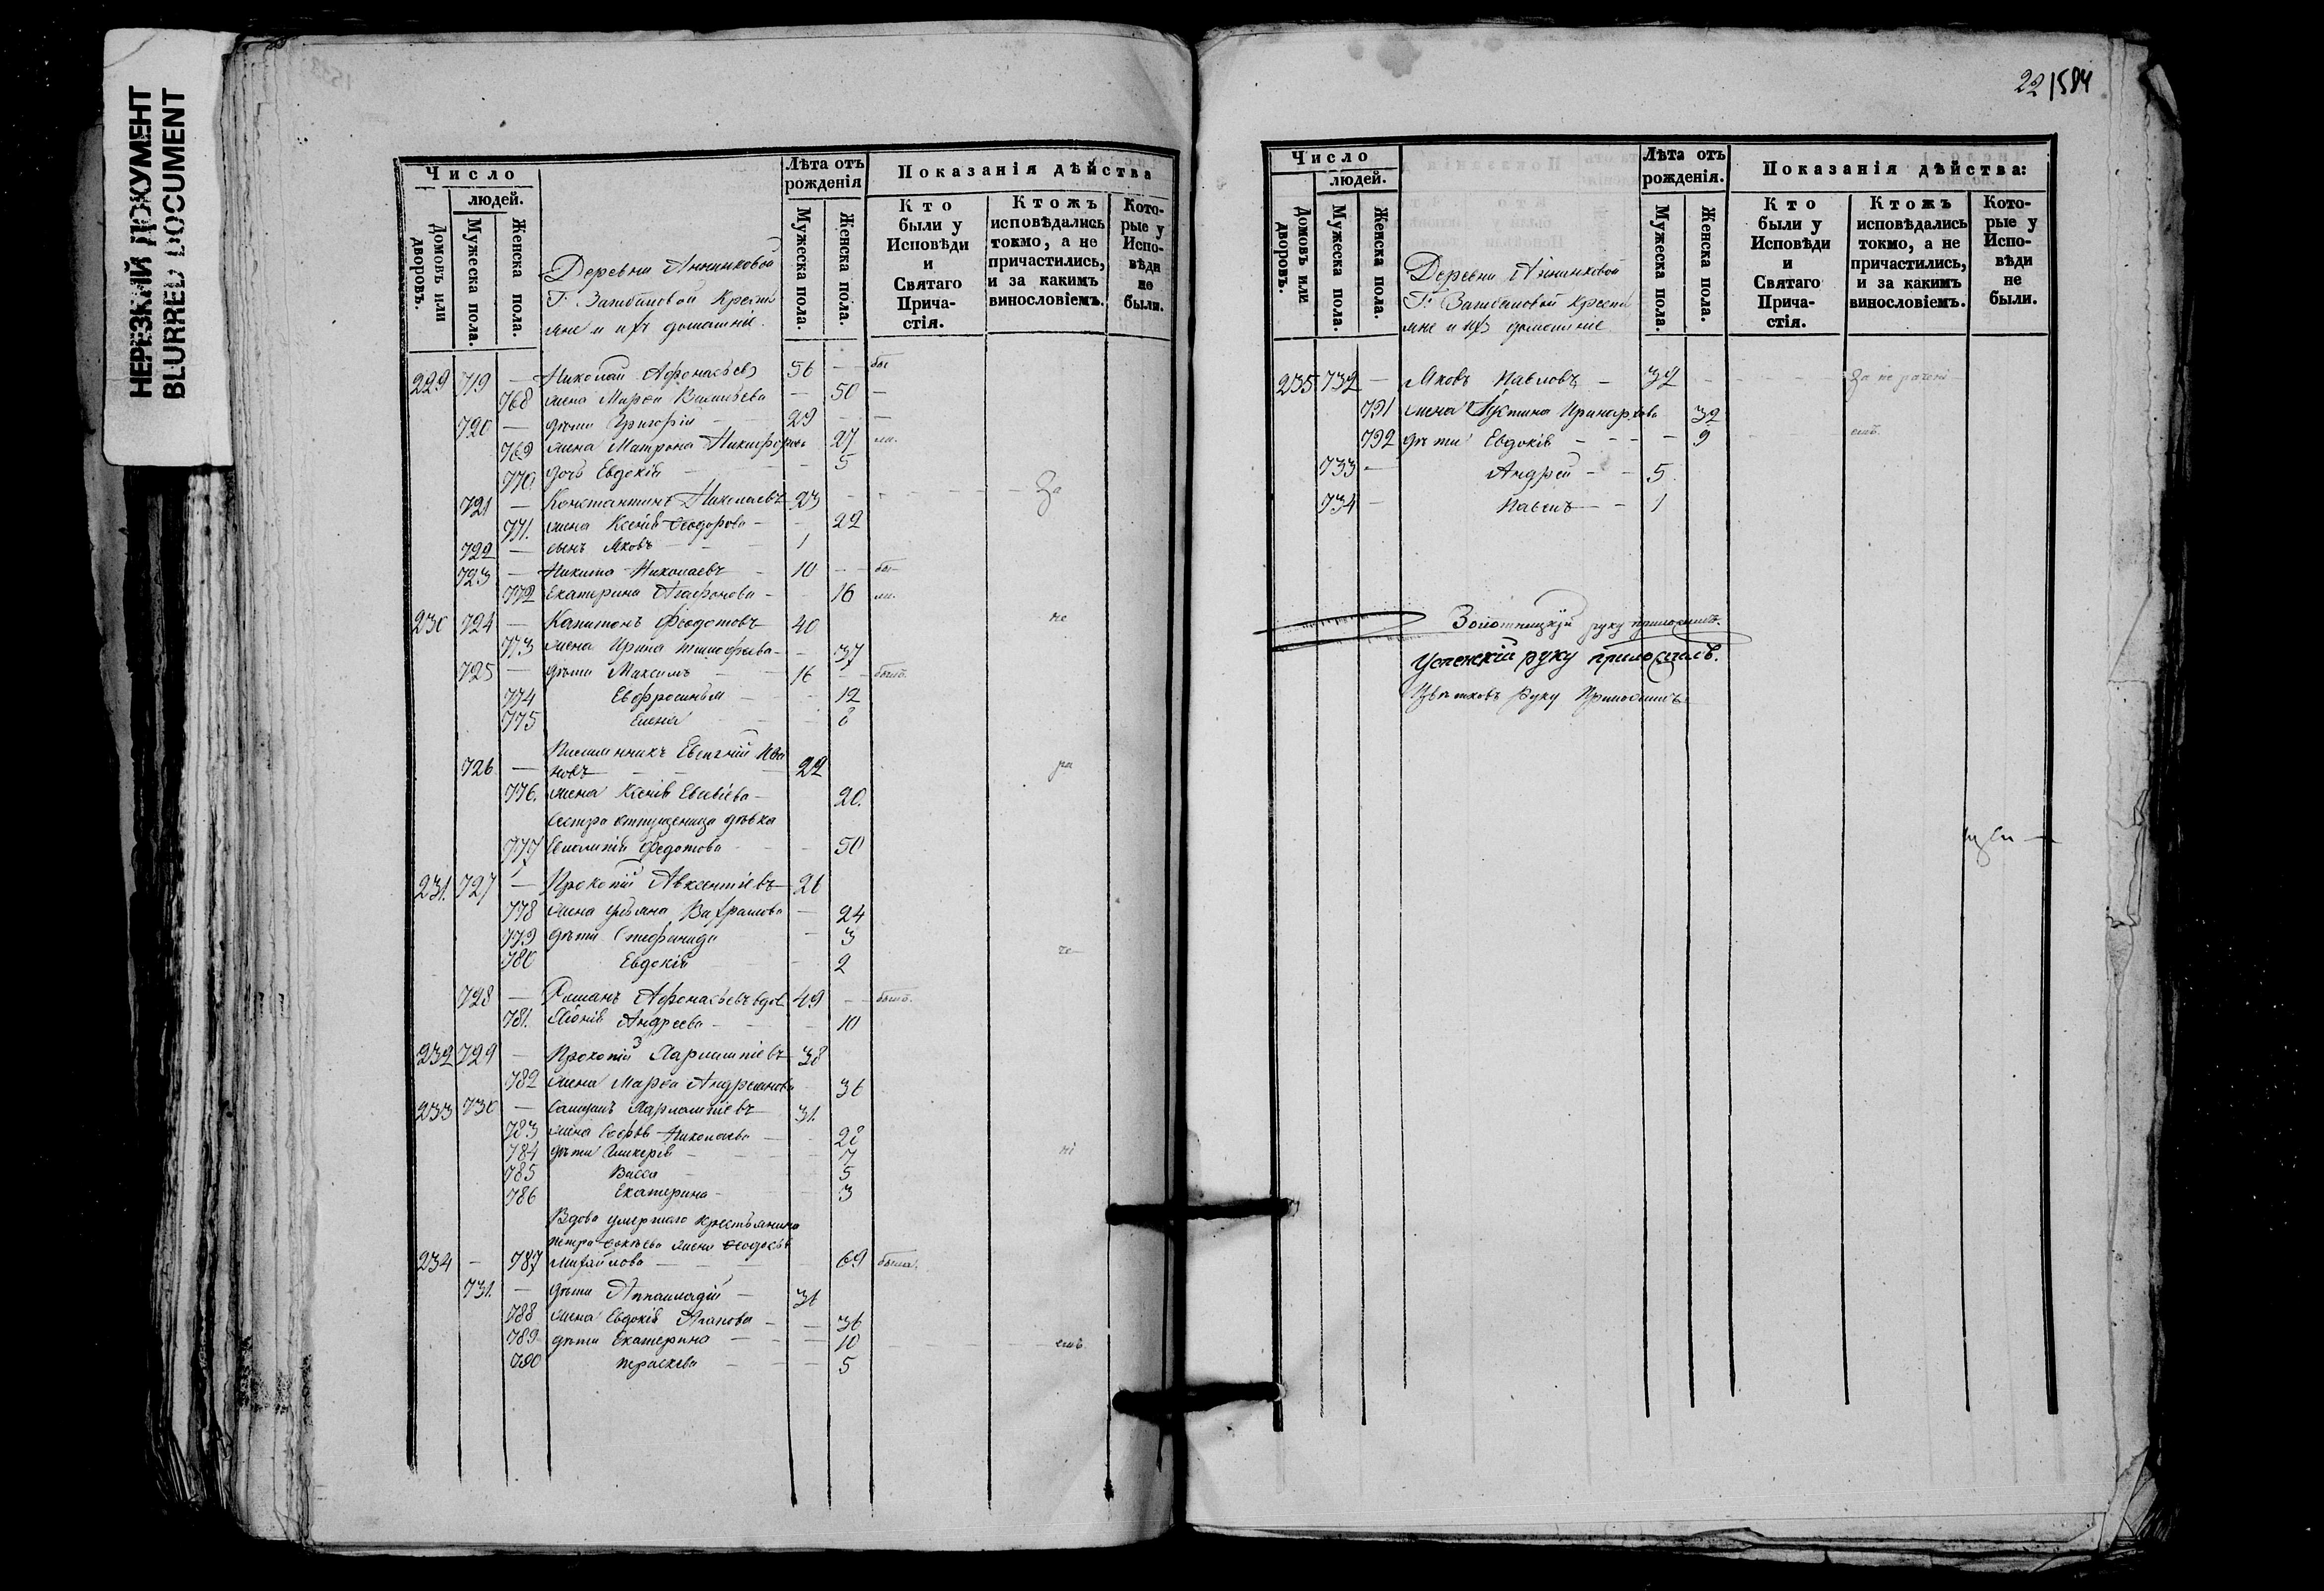 НЕРЕЗКИЙ ДОКУМЕНТ
BLURRED DOCUMENT
Число
людей.
Домовъ или дворовъ.
Мужеска пола.
Женска пола.
Деревни Анненковой
Г. Крестья
яне и ихъ домашніе.
Лѣта отъ рожденія
Мужеска пола.
Женска пола.
Показанія дѣйства
Кто были у Исповѣди и Святаго Причастія.
Ктожъ исповѣдались токмо, а не причастились, и за какимъ винословіемъ.
Которые у Исповѣди не были.
229 719 — Николай Афонасьевъ 56 — бы
768 жена Марѳа Васильева — 50 —
720 — дѣти Григорій 29 — —
769 жена Матрона Никифорова 27 ли.
770 дочь Евдокія — — 5
721 — Константинъ Николаевъ 23 — За
771. жена Ксенія Ѳеодорова — — 22
722 — сынъ Яковъ — — 1
723 — Никита Николаевъ — 10 — — бы
772 Екатерина Агафонова — 16 ли.
230 724 — Капитонъ Ѳеодотовъ 40 не
773 жена Ирина — — 37
725 — дѣти Максимъ — 16 — — былъ.
774 Евфросинья — 12
775 Елена — 8
Племянникъ Евгеній Ива
726 — новъ — — 22 ра
776. жена Ксенія — 20.
Сестра дѣвка
777 Федотова — — 50
231. 727 — Прокопій Авксентіевъ 26
778 жена Ульяна — 24
779 дѣти Стефанида — 3
780 Евдокія — 2 че
728 — Романъ Афонасьевъ вдов. 49 — — былъ.
781. Андреева — — 10
232 729 — Прокопій 38
782 жена Марѳа Андреянова 36
233 730 — 31.
783 жена Софья Николаева — 28
784 дѣти Гликерія — 7 ні
785 Васса — 5
786 Екатерина — 3
Вдова умершаго крестьянина
Петра жена Ѳеодосья
234 — 787 Михайлова — — 69 была.
731. — дѣти — 36
788 жена Евдокія — — 36
789 дѣти Екатерина — — 10 емъ
790 Параскева — — 5
22 1584
Число
людей.
Домовъ или дворовъ.
Мужеска пола.
Женска пола.
Деревни Анненковой
Г. Крестья
яне и ихъ домашніе
Лѣта отъ рожденія.
Мужеска пола.
Женска пола.
Показанія дѣйства:
Кто были у Исповѣди и Святаго Причастія.
Ктожъ исповѣдались токмо, а не причастились, и за какимъ винословіемъ.
Которые у Исповѣди не были.
235 732 — Яковъ Павловъ — 32 — За не рачені
791 жена Іустина Иринархова 32
792 дѣти Евдокія — — — 9 — емъ.
733 — Андрей — — 5
734 — Павелъ — — 1
Золотницкій руку приложилъ.
Успенскій руку приложилъ.
Цвѣтковъ Руку Приложилъ